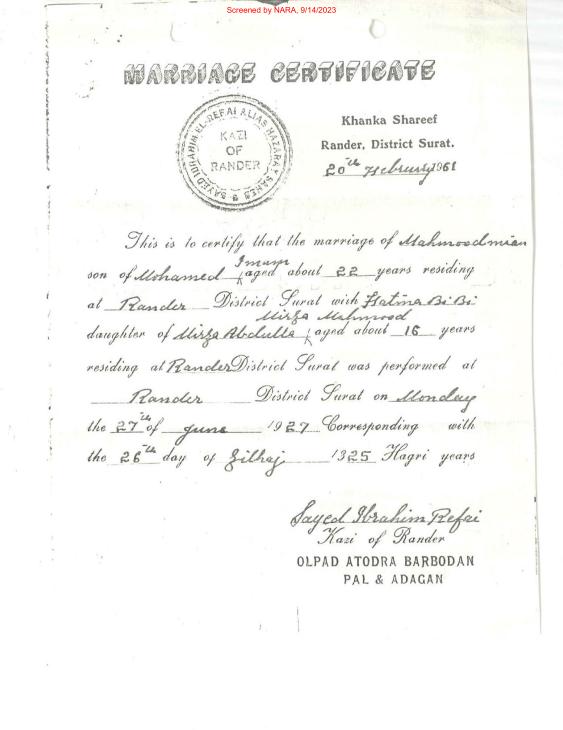 Screened by NARA, 9/14/2023
MARRIAGE CERTIFICATE
SAYED IBRAHIM EL-REFAI ALIAS HAZARAT SAHEB
KAZI
OF
RANDER
Khanka Shareef
Rander, District Surat.
20th February 1961
This is to certify that the marriage of Mahmoodmian
Imam
son of Mohamed aged about 22 years residing
at Rander District Surat with Fatma Bi Bi
Mirza Mahmood
daughter of Mirza Abdulla aged about 16 years
residing at Rander District Surat was performed at
Rander District Surat on Monday
the 27th of June 1927 Corresponding with
the 26th day of Zilhaj 1325 Hagri years
Sayed Ibrahim Refai
Kazi of Rander
OLPAD ATODRA BARBODAN
PAL & ADAGAN